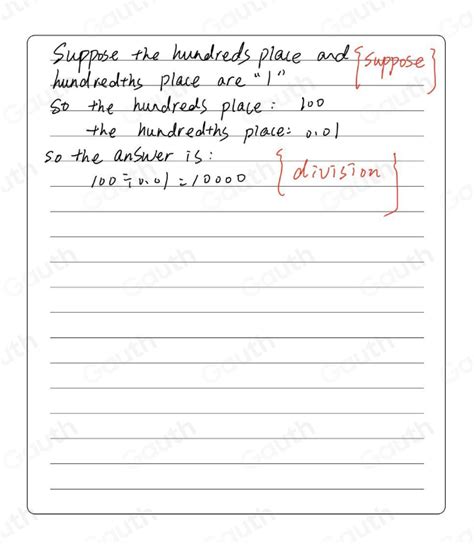 Suppose the hundreds place and {suppose}
hundredths place are "1"
So the hundreds place: 100
the hundredths place: 0.01
so the answer is:
100÷0.01=10000 {division}
Gauth